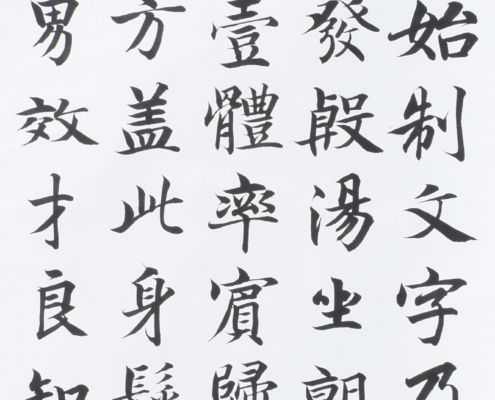 始制文字乃
發殷湯坐朝
壹體率賓歸
方盖此身髮
男效才良知